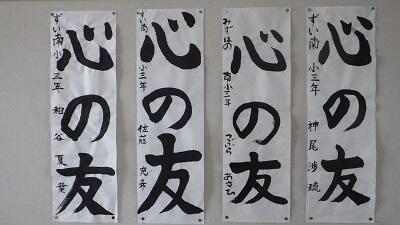 心の友
ずい南小 三年 粕谷 夏葉
心の友
ずい南 小三年 佐藤 光希
心の友
みずほの 南小三年 つぶら あさひ
心の友
ずい南 小三年 神尾 渉琉